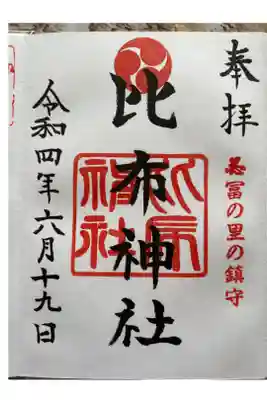 奉拝
冨の里の鎮守
比布神社
令和四年六月十九日